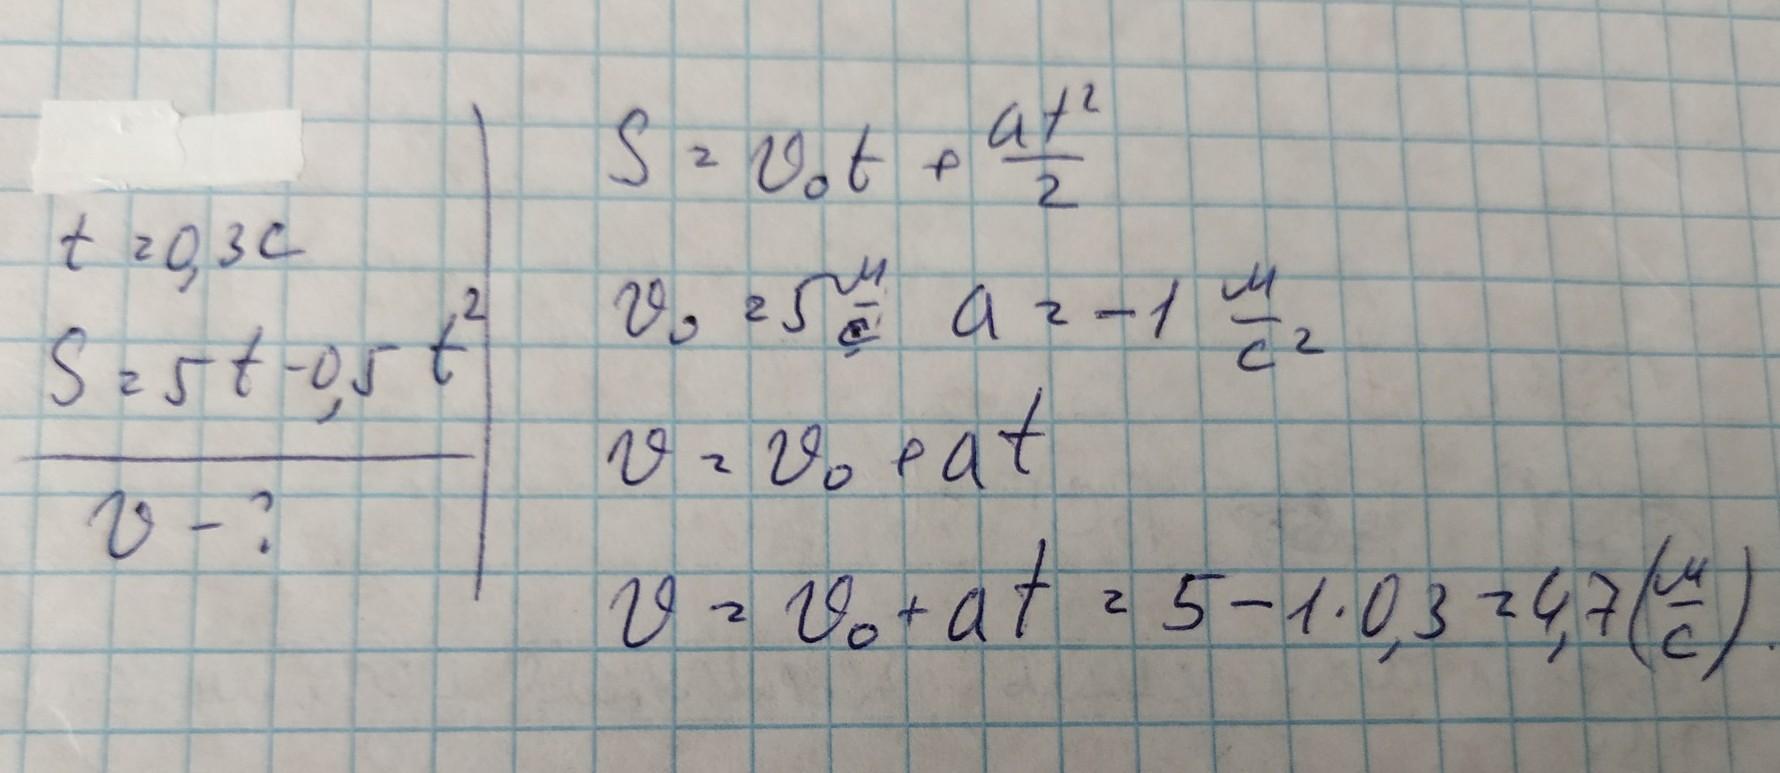 t = 0,3 с
S = 5t - 0,5t²
v - ?
S = v₀t + at²/2
v₀ = 5 м/с a = -1 м/с²
v = v₀ + at
v = v₀ + at = 5 - 1·0,3 = 4,7 (м/с).